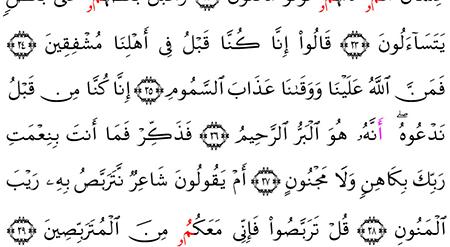 يَتَسَآءَلُونَ ﴿٢٣﴾ قَالُوٓا۟ إِنَّا كُنَّا قَبْلُ فِىٓ أَهْلِنَا مُشْفِقِينَ ﴿٢٤﴾
فَمَنَّ ٱللَّهُ عَلَيْنَا وَوَقَىٰنَا عَذَابَ ٱلسَّمُومِ ﴿٢٥﴾ إِنَّا كُنَّا مِن قَبْلُ
نَدْعُوهُ ۖ أَنَّهُۥ هُوَ ٱلْبَرُّ ٱلرَّحِيمُ ﴿٢٦﴾ فَذَكِّرْ فَمَآ أَنتَ بِنِعْمَتِ
رَبِّكَ بِكَاهِنٍ وَلَا مَجْنُونٍ ﴿٢٧﴾ أَمْ يَقُولُونَ شَاعِرٌ نَّتَرَبَّصُ بِهِۦ رَيْبَ
ٱلْمَنُونِ ﴿٢٨﴾ قُلْ تَرَبَّصُوا۟ فَإِنِّى مَعَكُمُۥ مِنَ ٱلْمُتَرَبِّصِينَ ﴿٢٩﴾